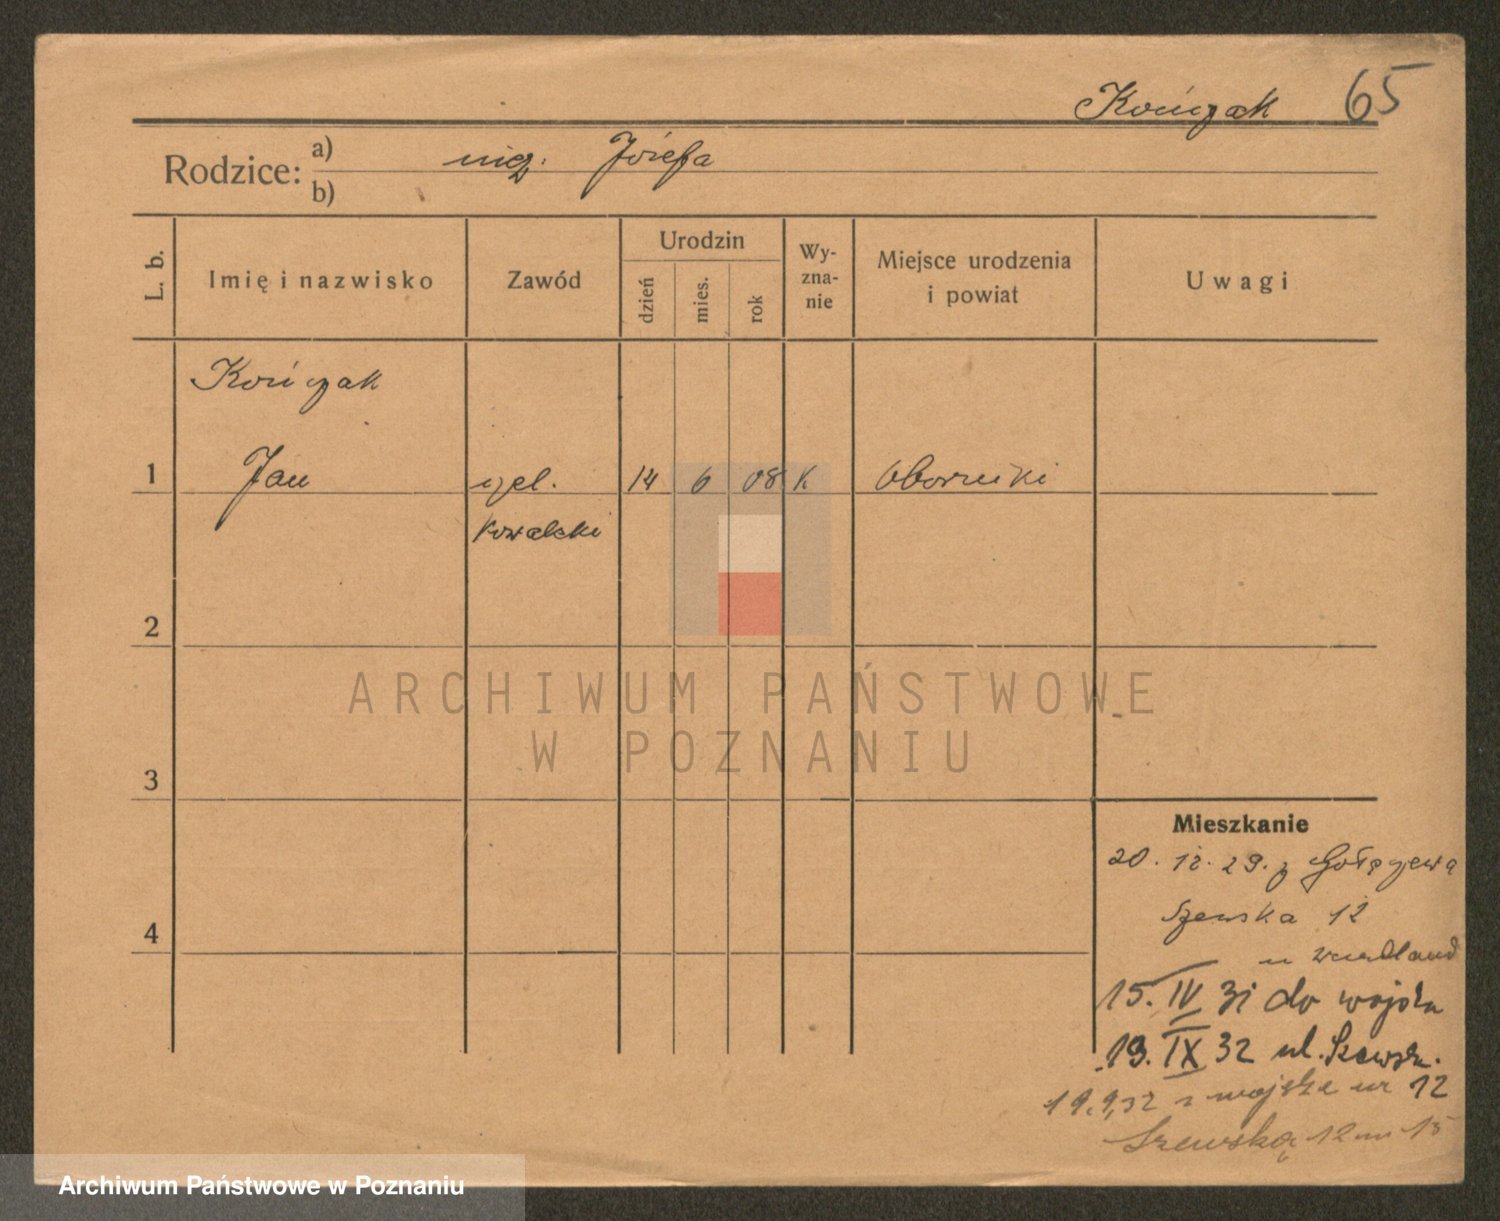 Kończak 65
Rodzice: a) Józefa
b)
L. b. Imię i nazwisko Zawód Urodzin dzień mies. rok Wy-zna-nie Miejsce urodzenia i powiat Uwagi
Kończak
1 Jan czel. 14 6 08 K Oborniki
kowalski
2
ARCHIWUM PAŃSTWOWE
W POZNANIU
3
Mieszkanie
20. 12. 29. z Gołęczewa
4
Szewska 12
u
15. IV 31 do wojska
19. IX 32 ul. Szewsk.
19.9.32 z wojska 12
Szewska 12 m 15
Archiwum Państwowe w Poznaniu